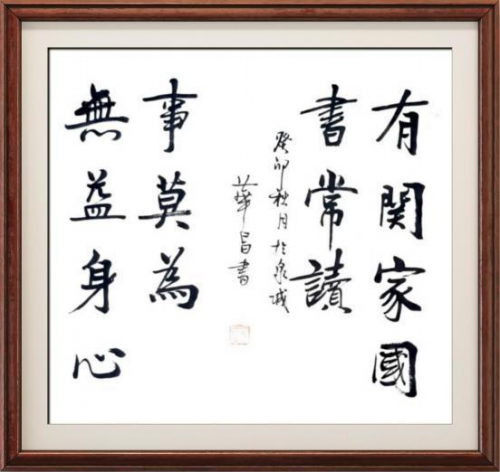 有関家國
書常讀
無益身心
事莫為
癸卯秋月於泉城
華書